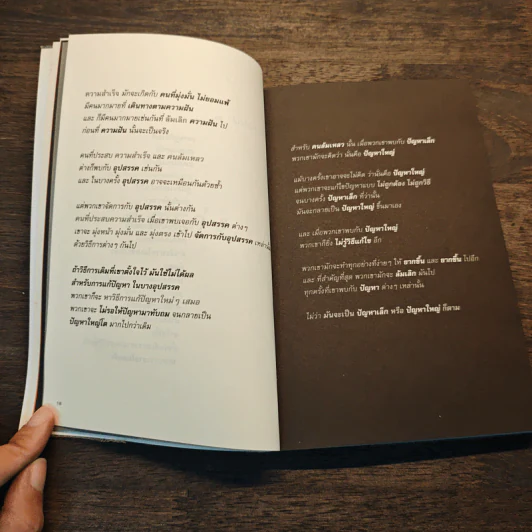 ความสำเร็จ มักจะเกิดกับ คนที่มุ่งมั่น ไม่ยอมแพ้
มีคนมากมายที่ เดินทางตามความฝัน
และ ก็มีคนมากมายเช่นกันที่ ล้มเลิก ความฝัน ไป
ก่อนที่ ความฝัน นั้นจะเป็นจริง
คนที่ประสบ ความสำเร็จ และ คนล้มเหลว
ต่างก็พบกับ อุปสรรค เช่นกัน
และ ในบางครั้ง อุปสรรค อาจจะเหมือนกันด้วยซ้ำ
แต่พวกเขาจัดการกับ อุปสรรค นั้นต่างกัน
คนที่ประสบความสำเร็จ เมื่อเขาพบเจอกับ อุปสรรค ต่างๆ
เขาจะ มุ่งหน้า มุ่งมั่น และ มุ่งตรง เข้าไป จัดการกับอุปสรรค เหล่านั้น
ด้วยวิธีการต่างๆ กันไป
ถ้าวิธีการเดิมที่เขาตั้งใจไว้ มันใช้ไม่ได้ผล
สำหรับการแก้ปัญหา ในบางอุปสรรค
พวกเขาก็จะ หาวิธีการแก้ปัญหาใหม่ ๆ เสมอ
พวกเขาจะ ไม่รอให้ปัญหามาทับถม จนกลายเป็น
ปัญหาใหญ่โต มากไปกว่าเดิม
สำหรับ คนล้มเหลว นั้น เมื่อพวกเขาพบกับ ปัญหาเล็ก
พวกเขามักจะคิดว่า นั่นคือ ปัญหาใหญ่
แม้บางครั้งเขาอาจจะไม่คิด ว่านั่นคือ ปัญหาใหญ่
แต่พวกเขาจะแก้ไขปัญหาแบบ ไม่ถูกต้อง ไม่ถูกวิธี
จนบางครั้ง ปัญหาเล็ก ที่ว่านั้น
มันจะกลายเป็น ปัญหาใหญ่ ขึ้นมาเอง
และ เมื่อพวกเขาพบกับ ปัญหาใหญ่
พวกเขาก็ยิ่ง ไม่รู้วิธีแก้ไข อีก
พวกเขามักจะทำทุกอย่างที่ง่ายๆ ให้ ยากขึ้น และ ยากขึ้น ไปอีก
และ ที่สำคัญที่สุด พวกเขามักจะ ล้มเลิก มันไป
ทุกครั้งที่เขาพบกับ ปัญหา ต่างๆ เหล่านั้น
ไม่ว่า มันจะเป็น ปัญหาเล็ก หรือ ปัญหาใหญ่ ก็ตาม